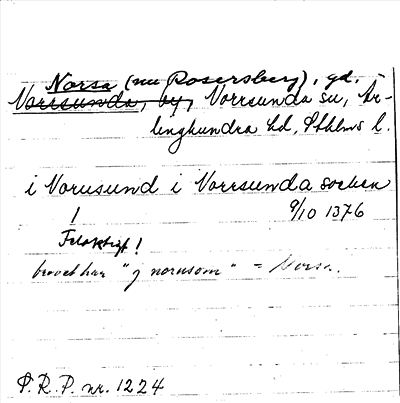 Norsa (nu Rosersberg), gd,
Norrsunda, by, Norrsunda sn, Är-
linghundra hd, Sthlms l.
i Norusund i Norrsunda socken
! 9/10 1376
Felaktigt!
brevet har "j norusom" = Norsa.
P.R.P. nr. 1224